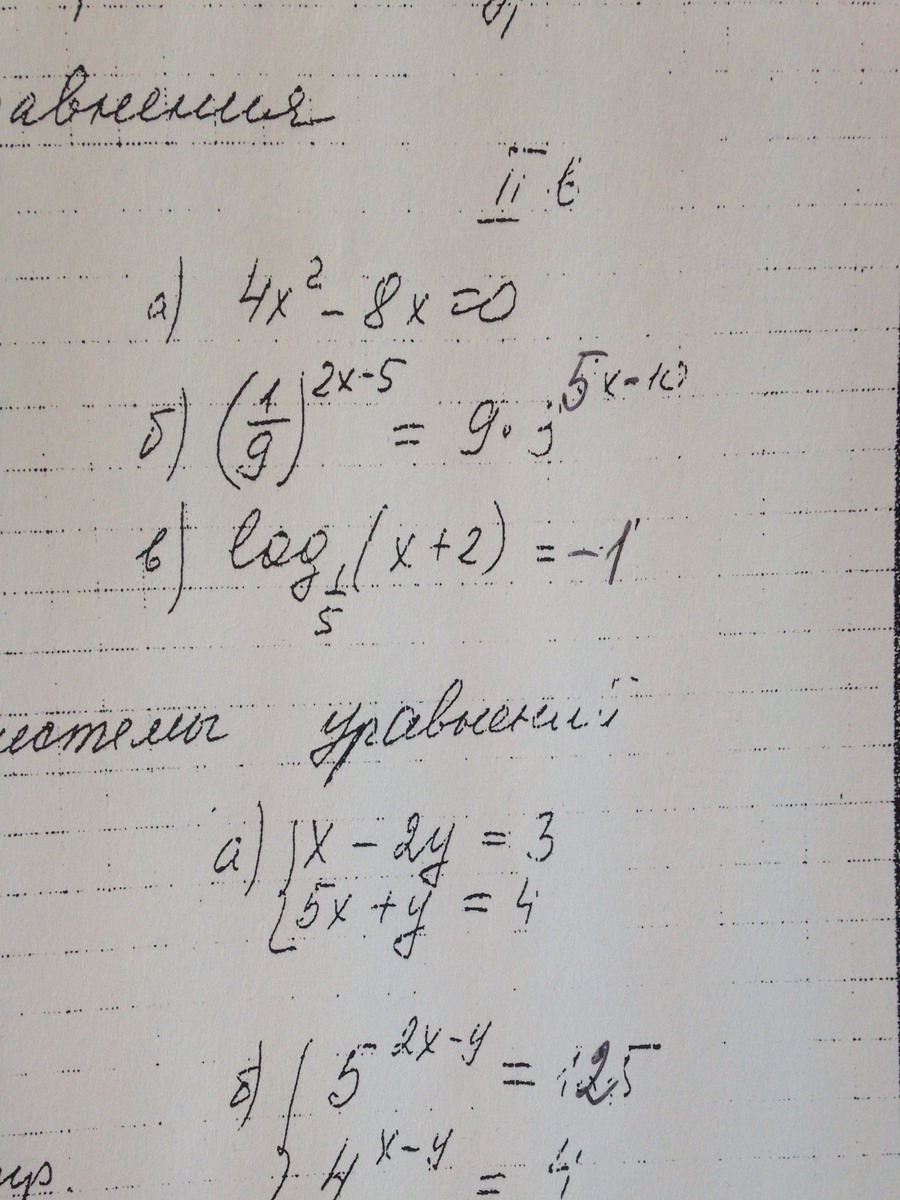 авнения
II в
а) 4x² - 8x = 0
б) (1/9)^(2x-5) = 9 · 3^(5x-10)
в) log_(1/5) (x+2) = -1
истемы уравнений
а) { x - 2y = 3
5x + y = 4
б) { 5^(2x-y) = 125
4^(x-y) = 4
ур.